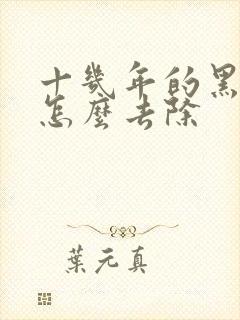 十幾年的黑
怎麼去除
葉元真